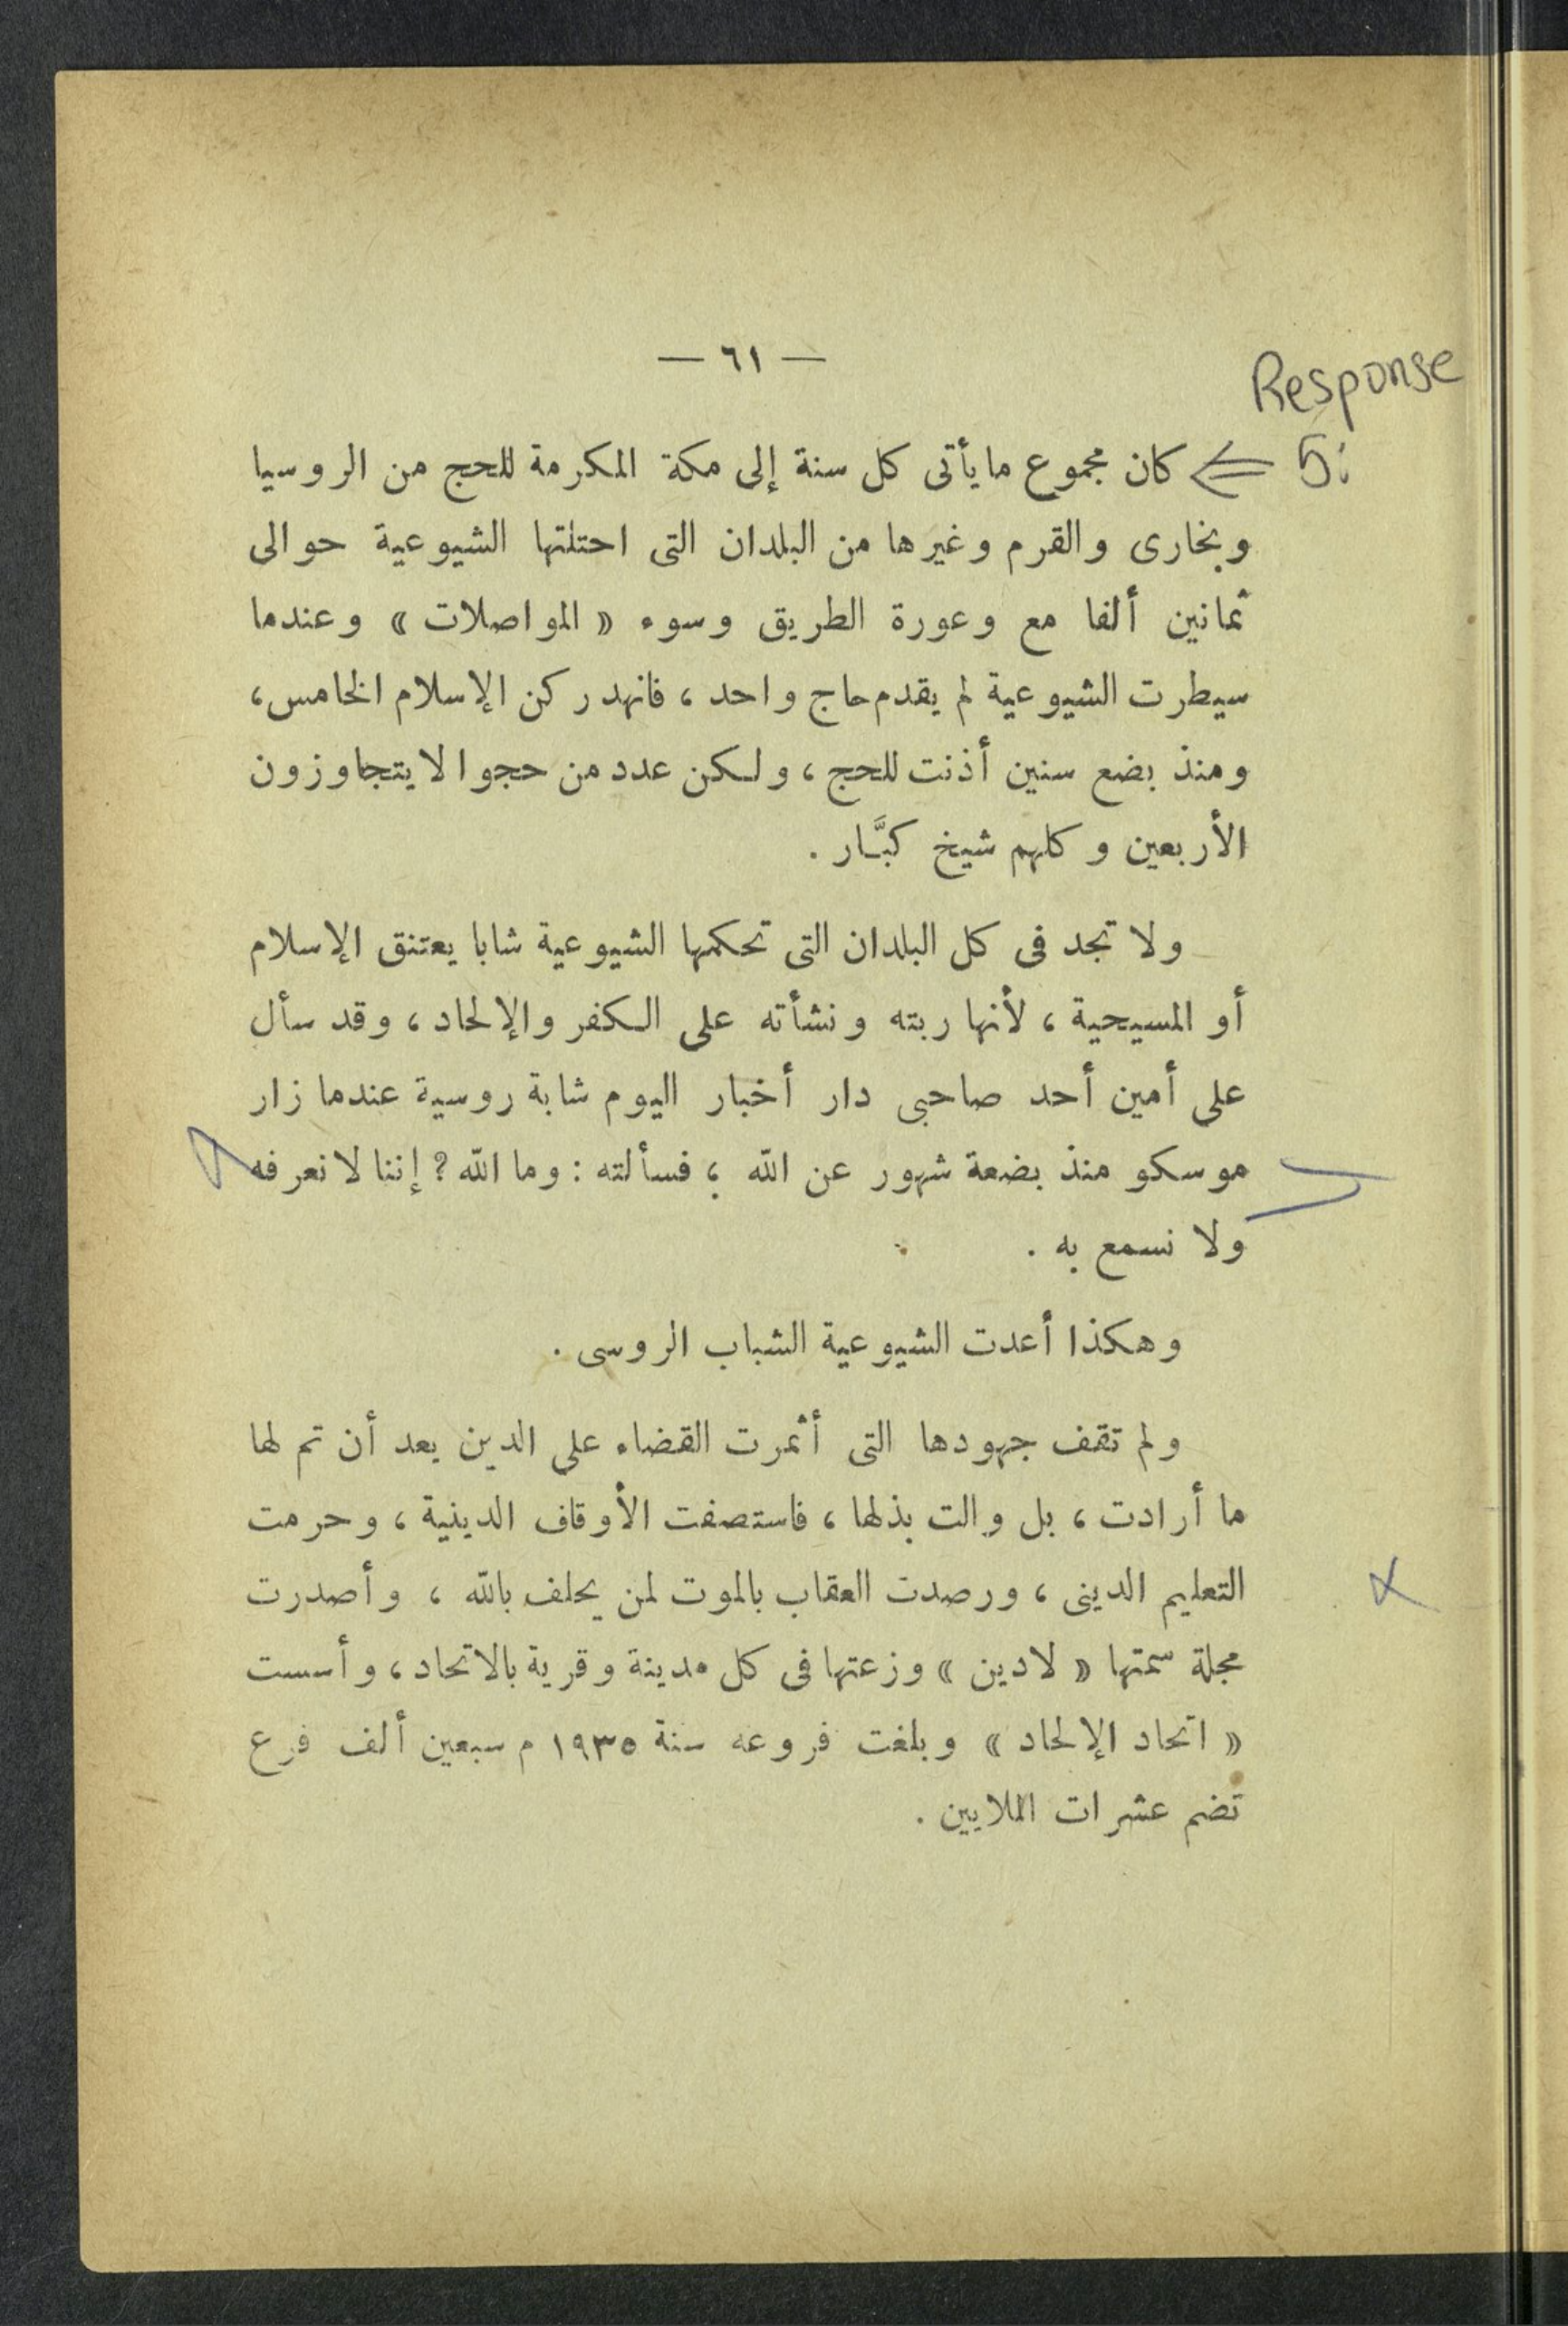 — ٦١ —
Response
5: كان مجموع ما يأتى كل سنة إلى مكة المكرمة للحج من الروسيا
وبخارى والقرم وغيرها من البلدان التى احتلتها الشيوعية حوالى
ثمانين ألفا مع وعورة الطريق وسوء « المواصلات » وعندما
سيطرت الشيوعية لم يقدم حاج واحد ، فانهد ركن الإسلام الخامس ،
ومنذ بضع سنين أذنت للحج ، ولكن عدد من حجوا لا يتجاوزون
الأربعين وكلهم شيخ كبَّار .
ولا تجد فى كل البلدان التى تحكمها الشيوعية شابا يعتنق الإسلام
أو المسيحية ، لأنها ربته ونشأته على الكفر والإلحاد ، وقد سأل
على أمين أحد صاحبى دار أخبار اليوم شابة روسية عندما زار
موسكو منذ بضعة شهور عن الله ؛ فسألته : وما الله ؟ إننا لا نعرفه
ولا نسمع به .
وهكذا أعدت الشيوعية الشباب الروسى .
ولم تقف جهودها التى أثمرت القضاء على الدين بعد أن تم لها
ما أرادت ، بل والت بذلها ، فاستصفت الأوقاف الدينية ، وحرمت
التعليم الدينى ، ورصدت العقاب بالموت لمن يحلف بالله ، وأصدرت
مجلة سمتها « لا دين » وزعتها فى كل مدينة وقرية بالاتحاد ، وأسست
« اتحاد الإلحاد » وبلغت فروعه سنة ١٩٣٥ م سبعين ألف فرع
تضم عشرات الملايين .